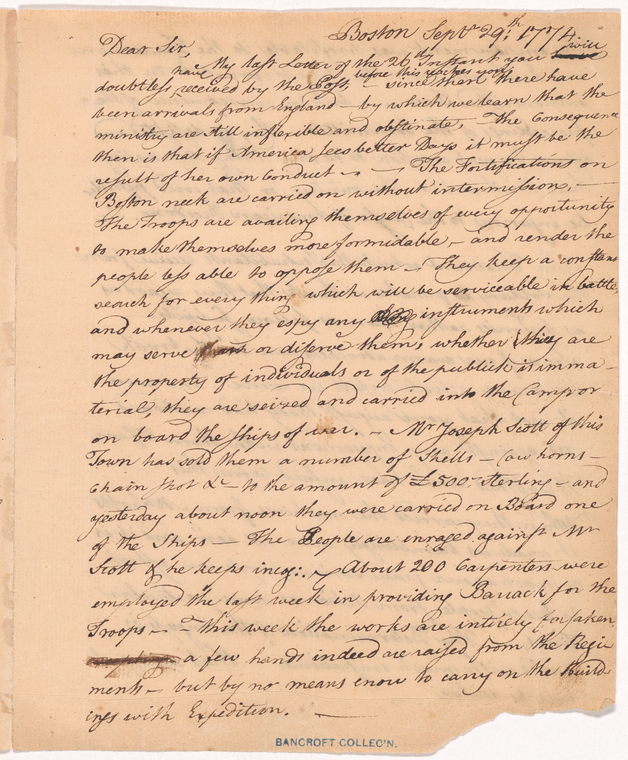 Boston Septr. 29th. 1774
Dear Sir,
My last Letter of the 26th. Instant you will
doubtless have received by the Post, before this reaches you - since then there have
been arrivals from England - by which we learn that the
ministry are still inflexible and obstinate, The Consequence
then is that if America sees better Days it must be the
result of her own Conduct - - The Fortifications on
Boston neck are carried on without intermission, -
The Troops are availing themselves of every opportunity
to make themselves more formidable, - and render the
people less able to oppose them - They keep a constant
search for every thing which will be serviceable in battle,
and whenever they espy any instruments which
may serve or diserve them, whether they are
the property of individuals or of the publick is imma-
terial, they are seized and carried into the Camp or
on board the ships of war. - Mr Joseph Scott of this
Town has sold them a number of Shells - Cow horns -
Chain shot &c - to the amount of £500 - sterling - and
yesterday about noon they were carried on Board one
of the Ships - The People are enraged against Mr
Scott & he keeps incog: - About 200 Carpenters were
employed the last week in providing Barrack for the
Troops - - this week the works are intirely forsaken
a few hands indeed are raised from the Regi
ments - but by no means enow to carry on the Build-
ings with Expedition. -
BANCROFT COLLEC'N.